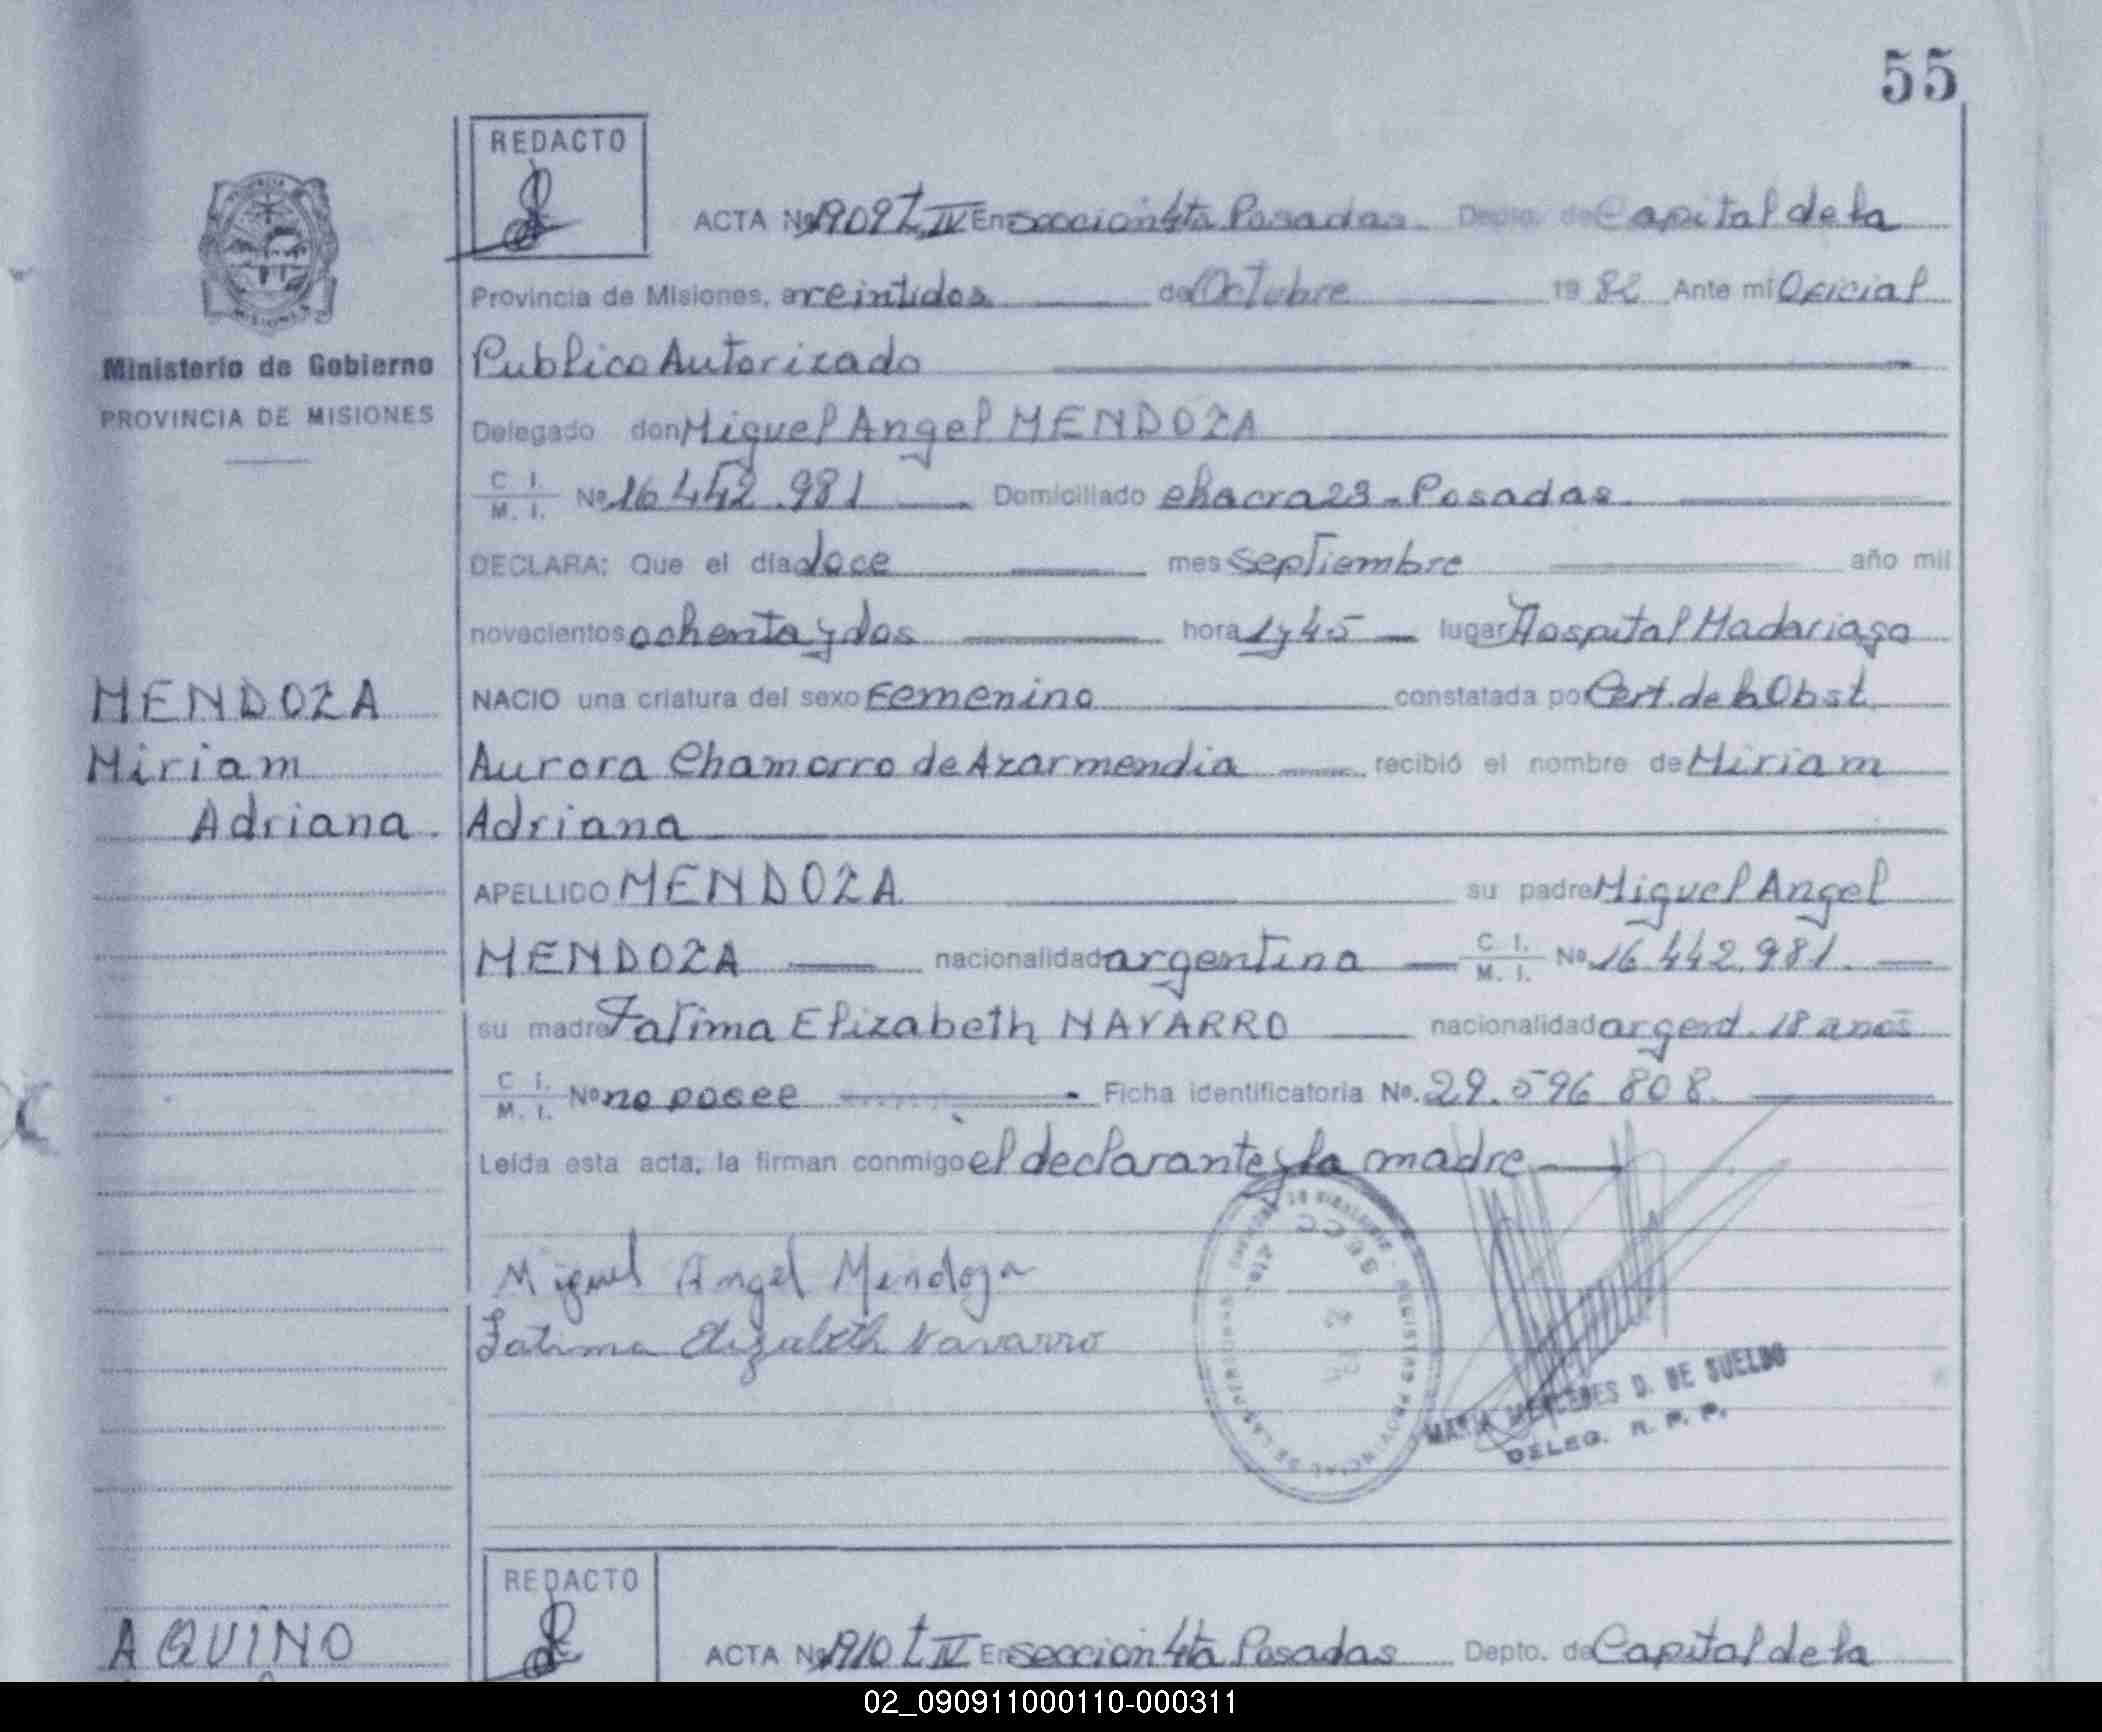 55
REDACTO
ACTA Nº 1909 t IV En seccion 4ta Posadas Depto. de Capital de la
Provincia de Misiones, a veintidos de Octubre 1982 Ante mi Oficial
Publico Autorizado
Ministerio de Gobierno
PROVINCIA DE MISIONES
Delegado don Miguel Angel MENDOZA
C. I. M. I. Nº 16.442.981 Domiciliado chacra 23 - Posadas
DECLARA: Que el día doce mes septiembre año mil
novecientos ochenta y dos hora 1 y 45 lugar Hospital Madariaga
MENDOZA
NACIO una criatura del sexo Femenino constatada por Cert. de la Obst.
Miriam
Aurora Chamorro de Azarmendia recibió el nombre de Miriam
Adriana.
Adriana
APELLIDO MENDOZA su padre Miguel Angel
MENDOZA nacionalidad argentina C. I. M. I. Nº 16.442.981.
su madre Fatima Elizabeth NAVARRO nacionalidad argent. 18 anos
C. I. M. I. Nº no posee Ficha identificatoria Nº. 29.596.808.
Leída esta acta, la firman conmigo el declarante y la madre
Miguel Angel Mendoza
Fatima Elizabeth Navarro
MARIA MERCEDES D. DE SUELDO
DELEG. R. P. P.
REDACTO
AQUINO
ACTA Nº 1910 t IV En seccion 4ta Posadas Depto. de Capital de la
02_090911000110-000311